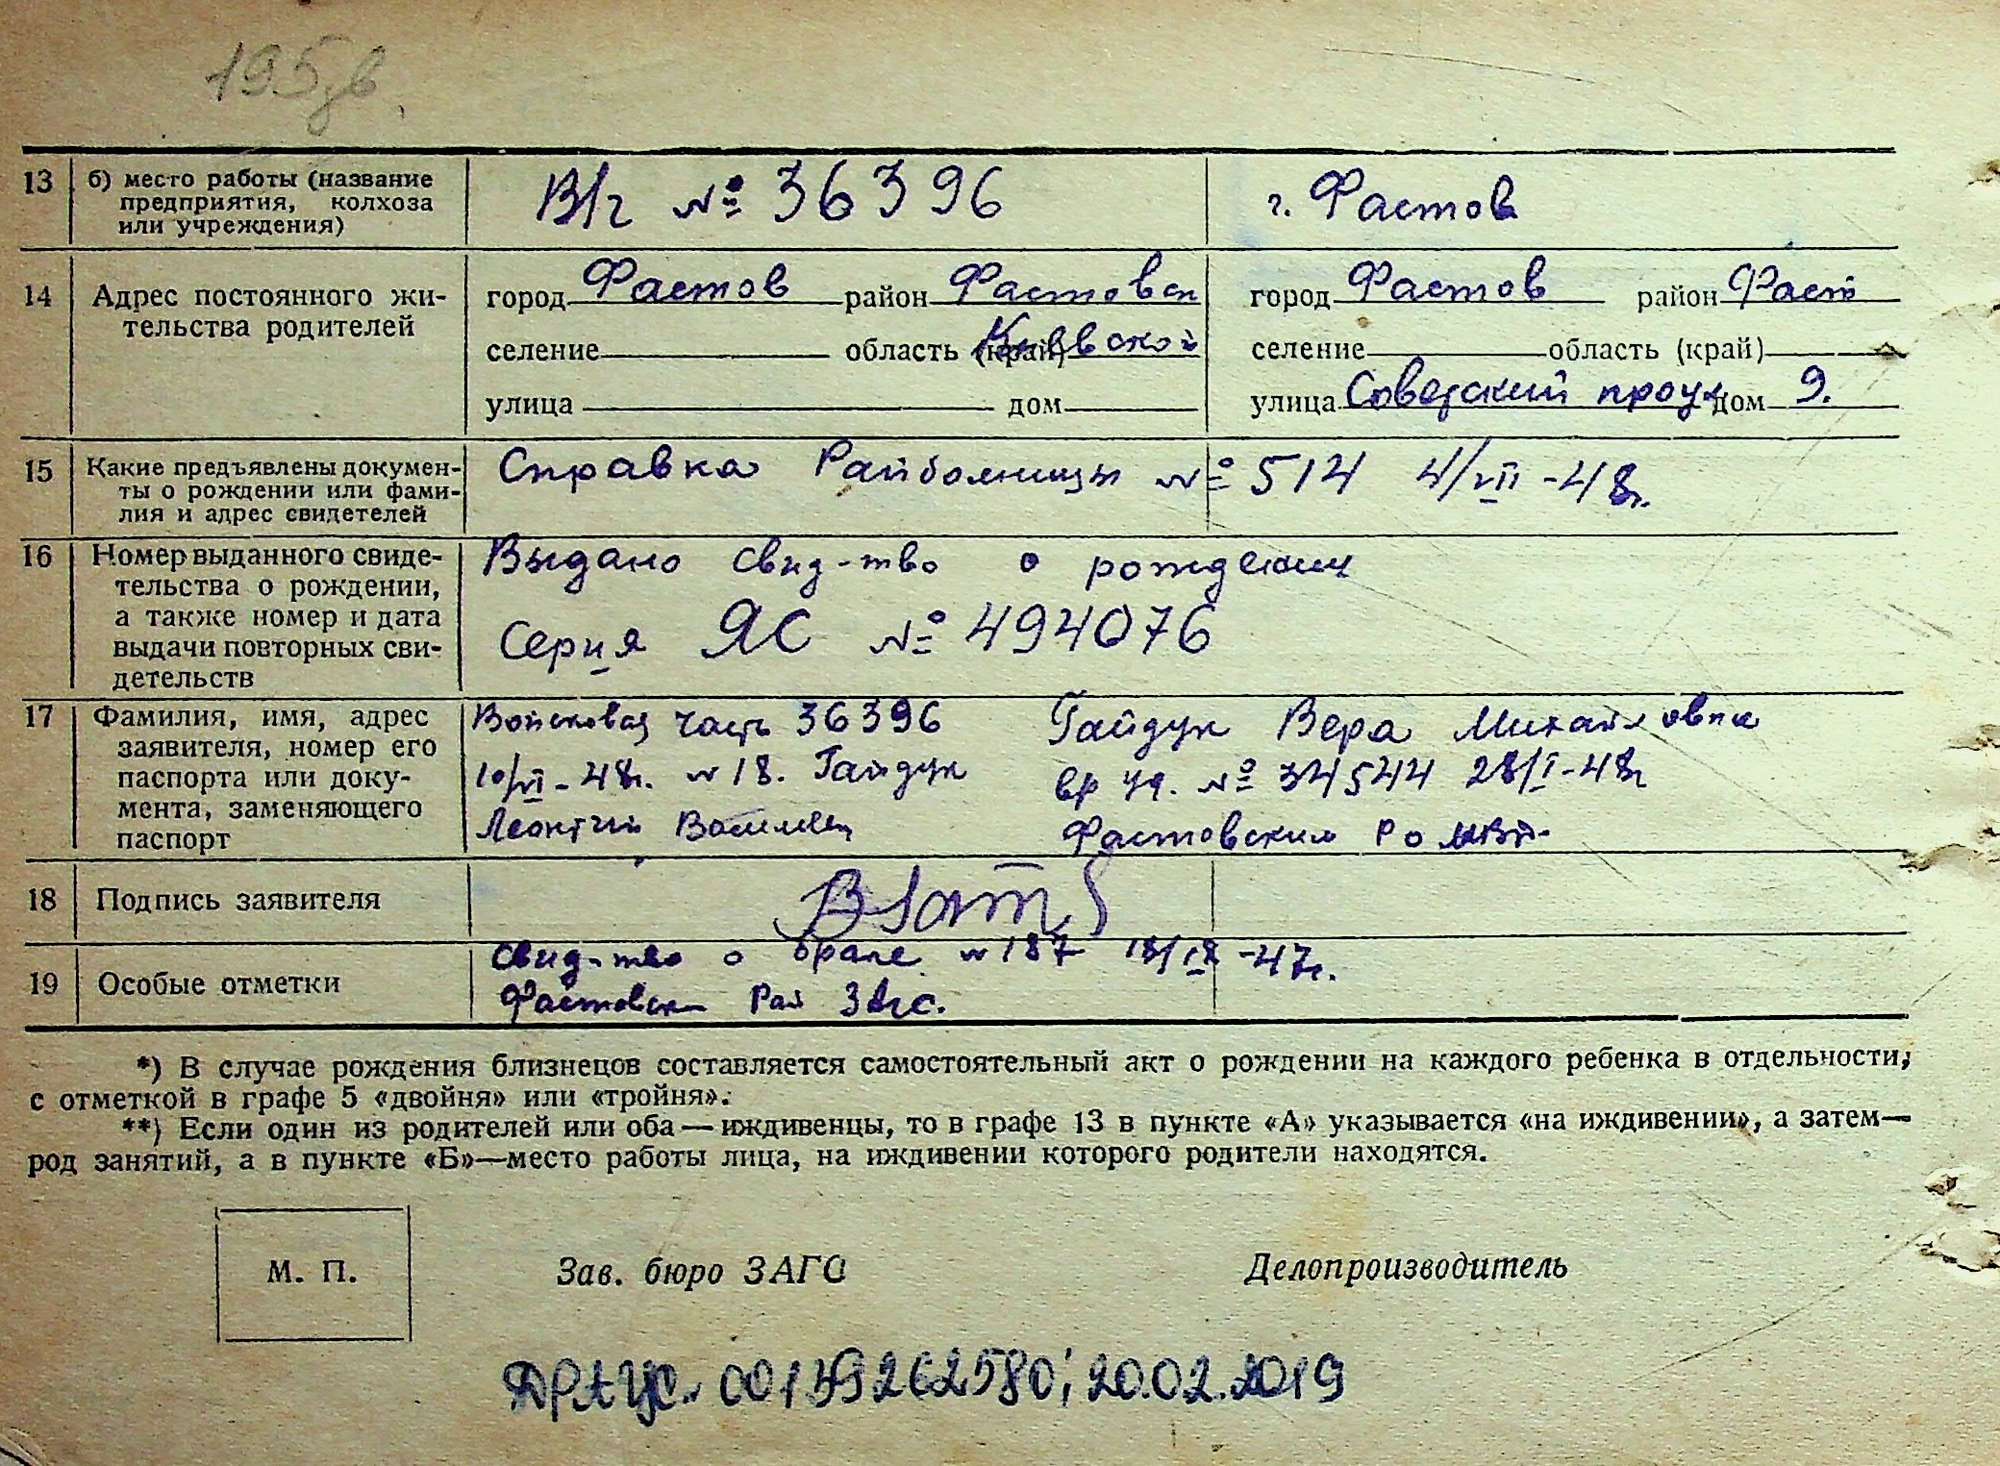 195
13 б) место работы (название предприятия, колхоза или учреждения) В/ч № 36396 г. Фастов
14 Адрес постоянного жи-
тельства родителей
город Фастов район Фастовск город Фастов район Фаст
селение область (край) Киевской селение область (край)
улица дом улица Советский проул дом 9.
15 Какие предъявлены докумен-
ты о рождении или фами-
лия и адрес свидетелей
Справка Райбольницы № 514 4/VII-48г.
16 Номер выданного свиде-
тельства о рождении,
а также номер и дата
выдачи повторных сви-
детельств
Выдано свид-тво о рождении
Серия ЯС № 494076
17 Фамилия, имя, адрес
заявителя, номер его
паспорта или доку-
мента, заменяющего
паспорт
Войсковая часть 36396
10/VI-48г. № 18. Гайдук
Леонтий
Гайдук Вера Михайловна
вр уд. № 34544 28/I-48г
Фастовским Ро МВД
18 Подпись заявителя
19 Особые отметки
свид-тво о браке № 187 18/IX-47г.
Фастовск Рай Загс.
*) В случае рождения близнецов составляется самостоятельный акт о рождении на каждого ребенка в отдельности,
с отметкой в графе 5 «двойня» или «тройня».
**) Если один из родителей или оба — иждивенцы, то в графе 13 в пункте «А» указывается «на иждивении», а затем—
род занятий, а в пункте «Б»—место работы лица, на иждивении которого родители находятся.
М. П. Зав. бюро ЗАГС Делопроизводитель
ДРАЦС. 00139262580; 20.02.2019